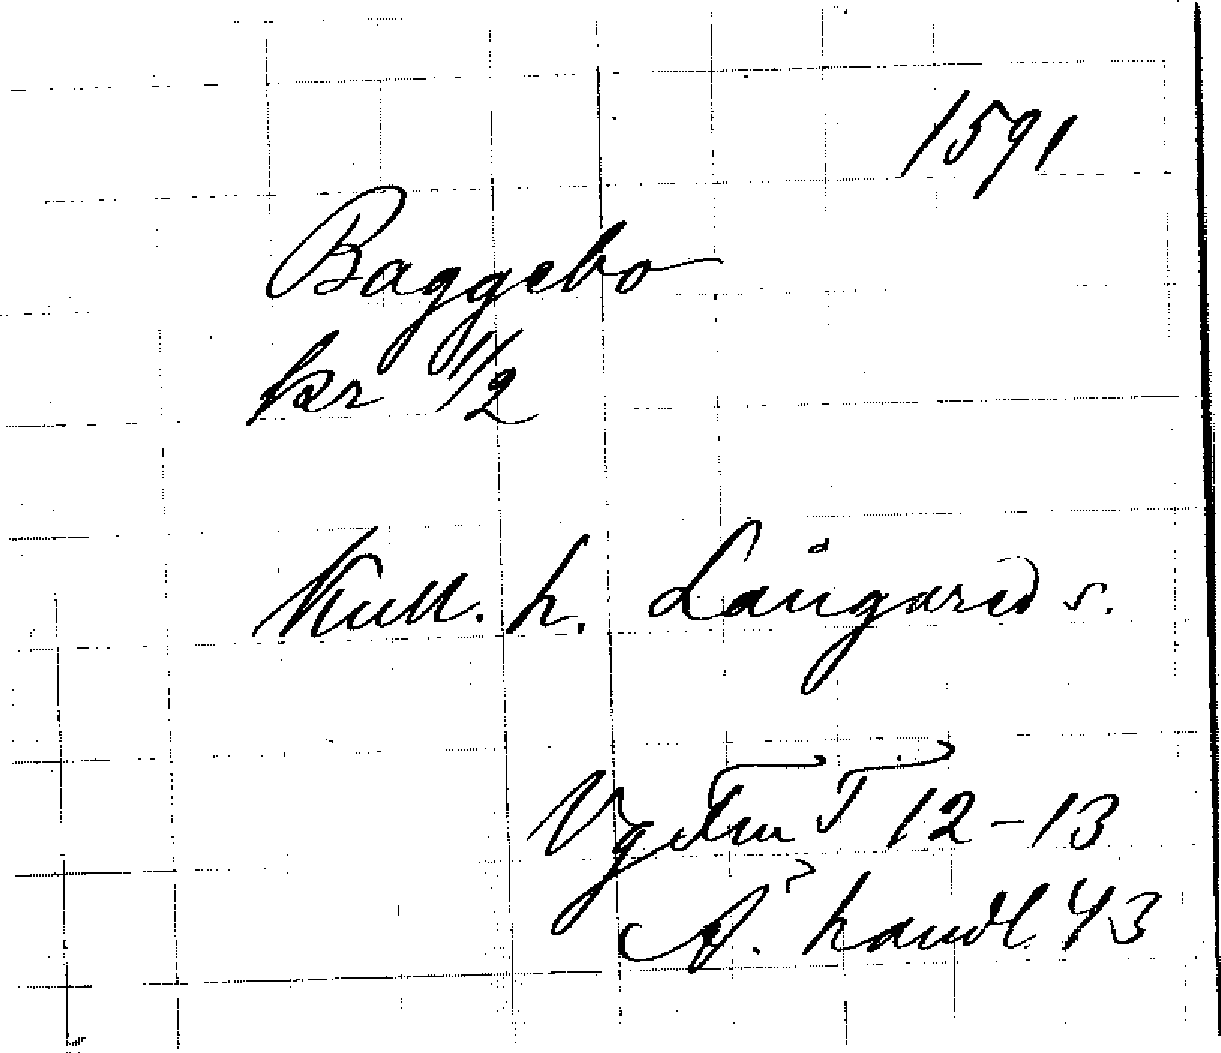 1591
Baggebo
kr 1/2
Kull. h. Långared s.
Vg Fru T 12-13
Ä. handl 43